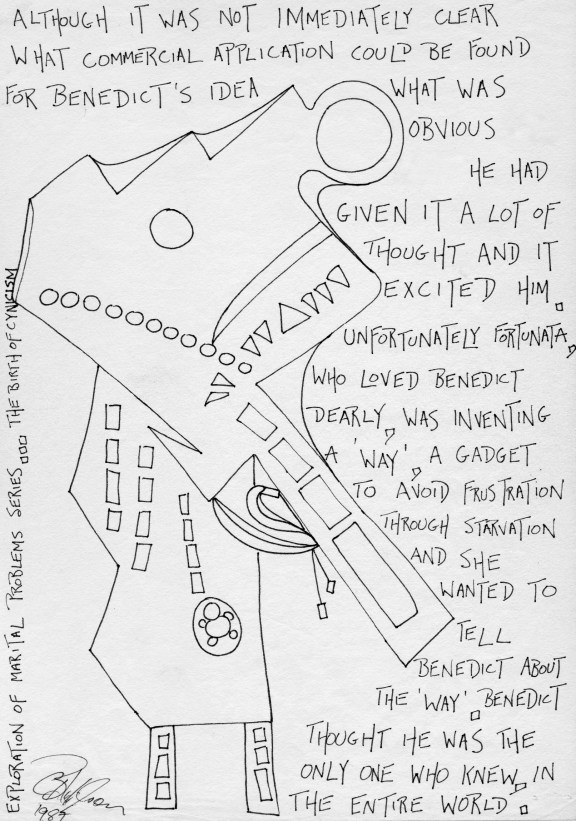 ALTHOUGH IT WAS NOT IMMEDIATELY CLEAR
WHAT COMMERCIAL APPLICATION COULD BE FOUND
FOR BENEDICT'S IDEA WHAT WAS
OBVIOUS
HE HAD
GIVEN IT A LOT OF
THOUGHT AND IT
EXCITED HIM.
UNFORTUNATELY FORTUNATA,
WHO LOVED BENEDICT
DEARLY, WAS INVENTING
A 'WAY', A GADGET
TO AVOID FRUSTRATION
THROUGH STARVATION
AND SHE
WANTED TO
TELL
BENEDICT ABOUT
THE 'WAY'. BENEDICT
THOUGHT HE WAS THE
ONLY ONE WHO KNEW, IN
THE ENTIRE WORLD.
EXPLORATION OF MARITAL PROBLEMS SERIES... THE BIRTH OF CYNICISM
1989